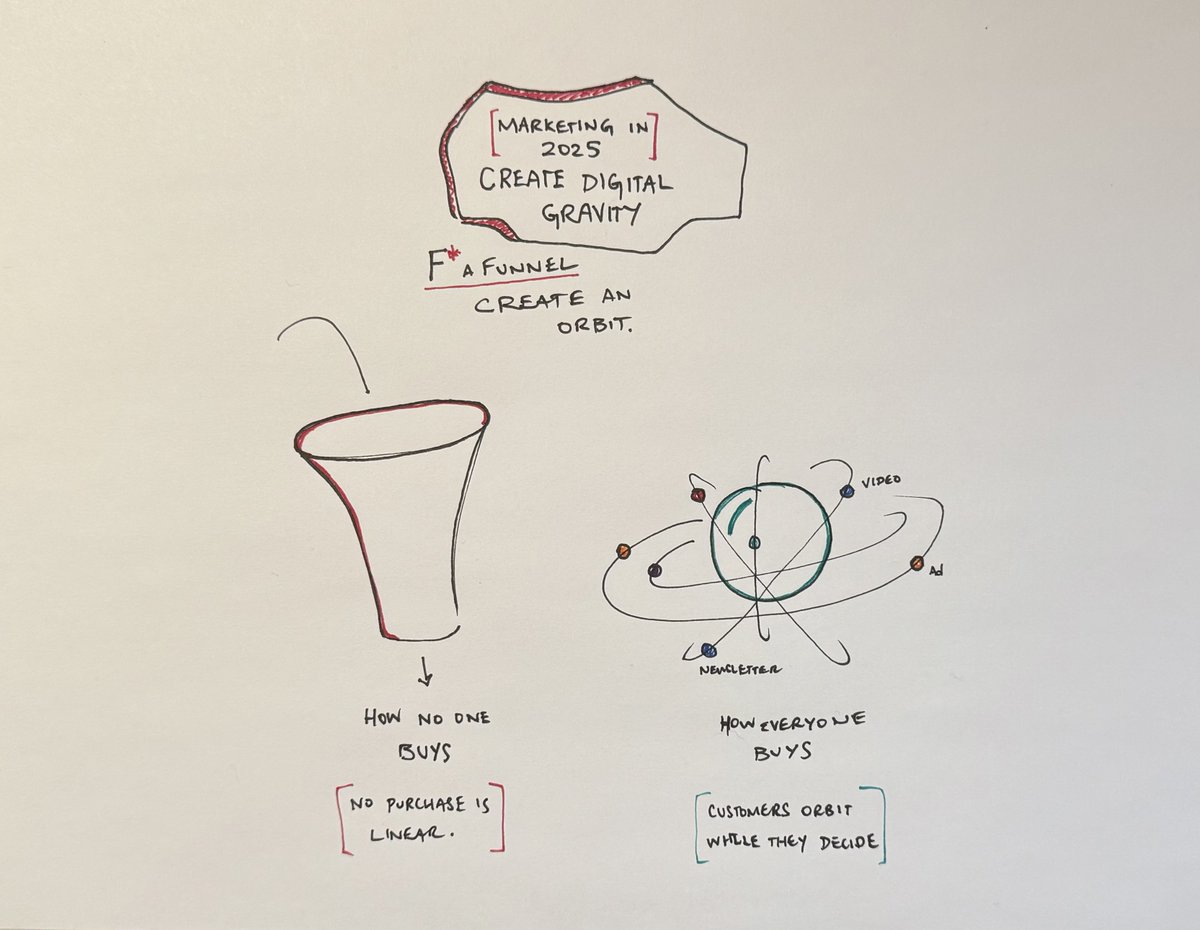 [MARKETING IN]
2025
CREATE DIGITAL
GRAVITY
F* A FUNNEL
CREATE AN
ORBIT.
VIDEO
Ad
NEWSLETTER
HOW NO ONE
BUYS
[NO PURCHASE IS
LINEAR.]
HOW EVERYONE
BUYS
[CUSTOMERS ORBIT
WHILE THEY DECIDE]